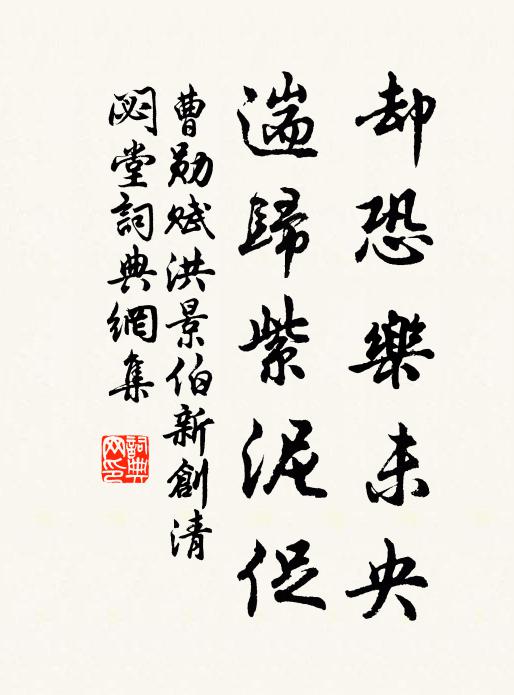 却恐樂未央
遄歸紫泥促
曹勛賦洪景伯新創清
閟堂詞典網集
詞典网印